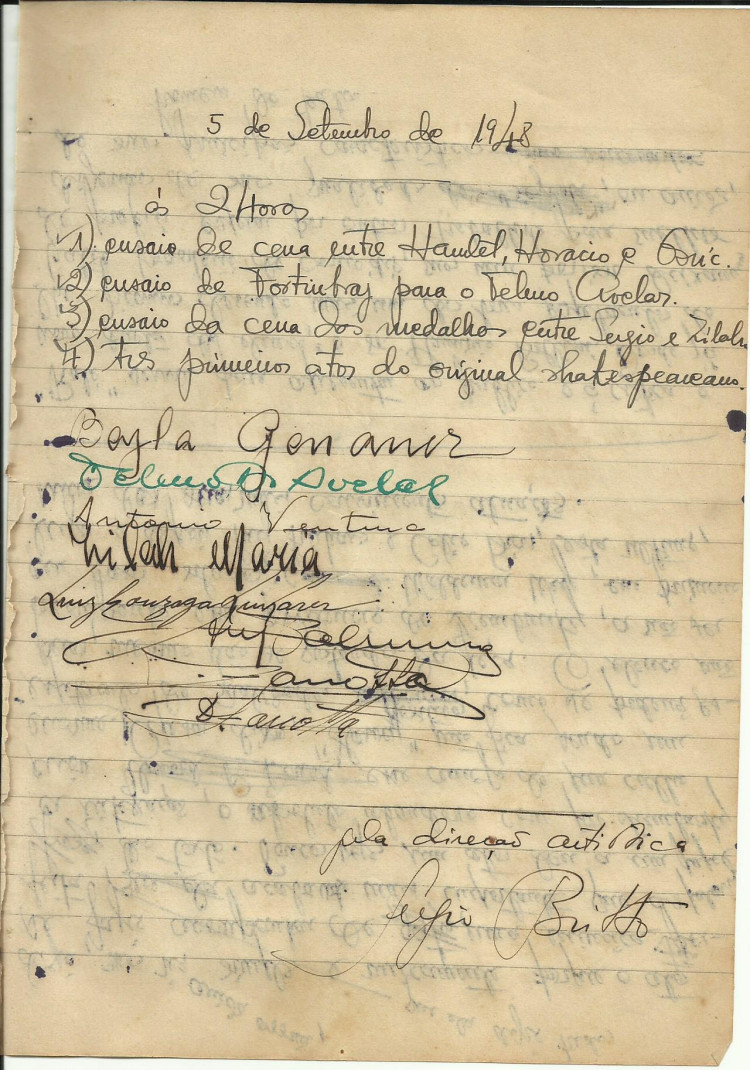 5 de Setembro de 1948
ás 2 Horas
1) ensaio de cena entre Hamlet, Horacio e Osric.
2) ensaio de Fortinbraz para o Telmo Avelar.
3) ensaio da cena dos medalhos entre Sergio e Zilah
4) Tres primeiros atos do original shakespeareano.
Beyla Genauer
Telmo D. Avelar
Antonio Ventura
Zilah Maria
Luiz Gonzaga
Zanotta
D. Zanotta
pela direção artistica
Sergio Britto